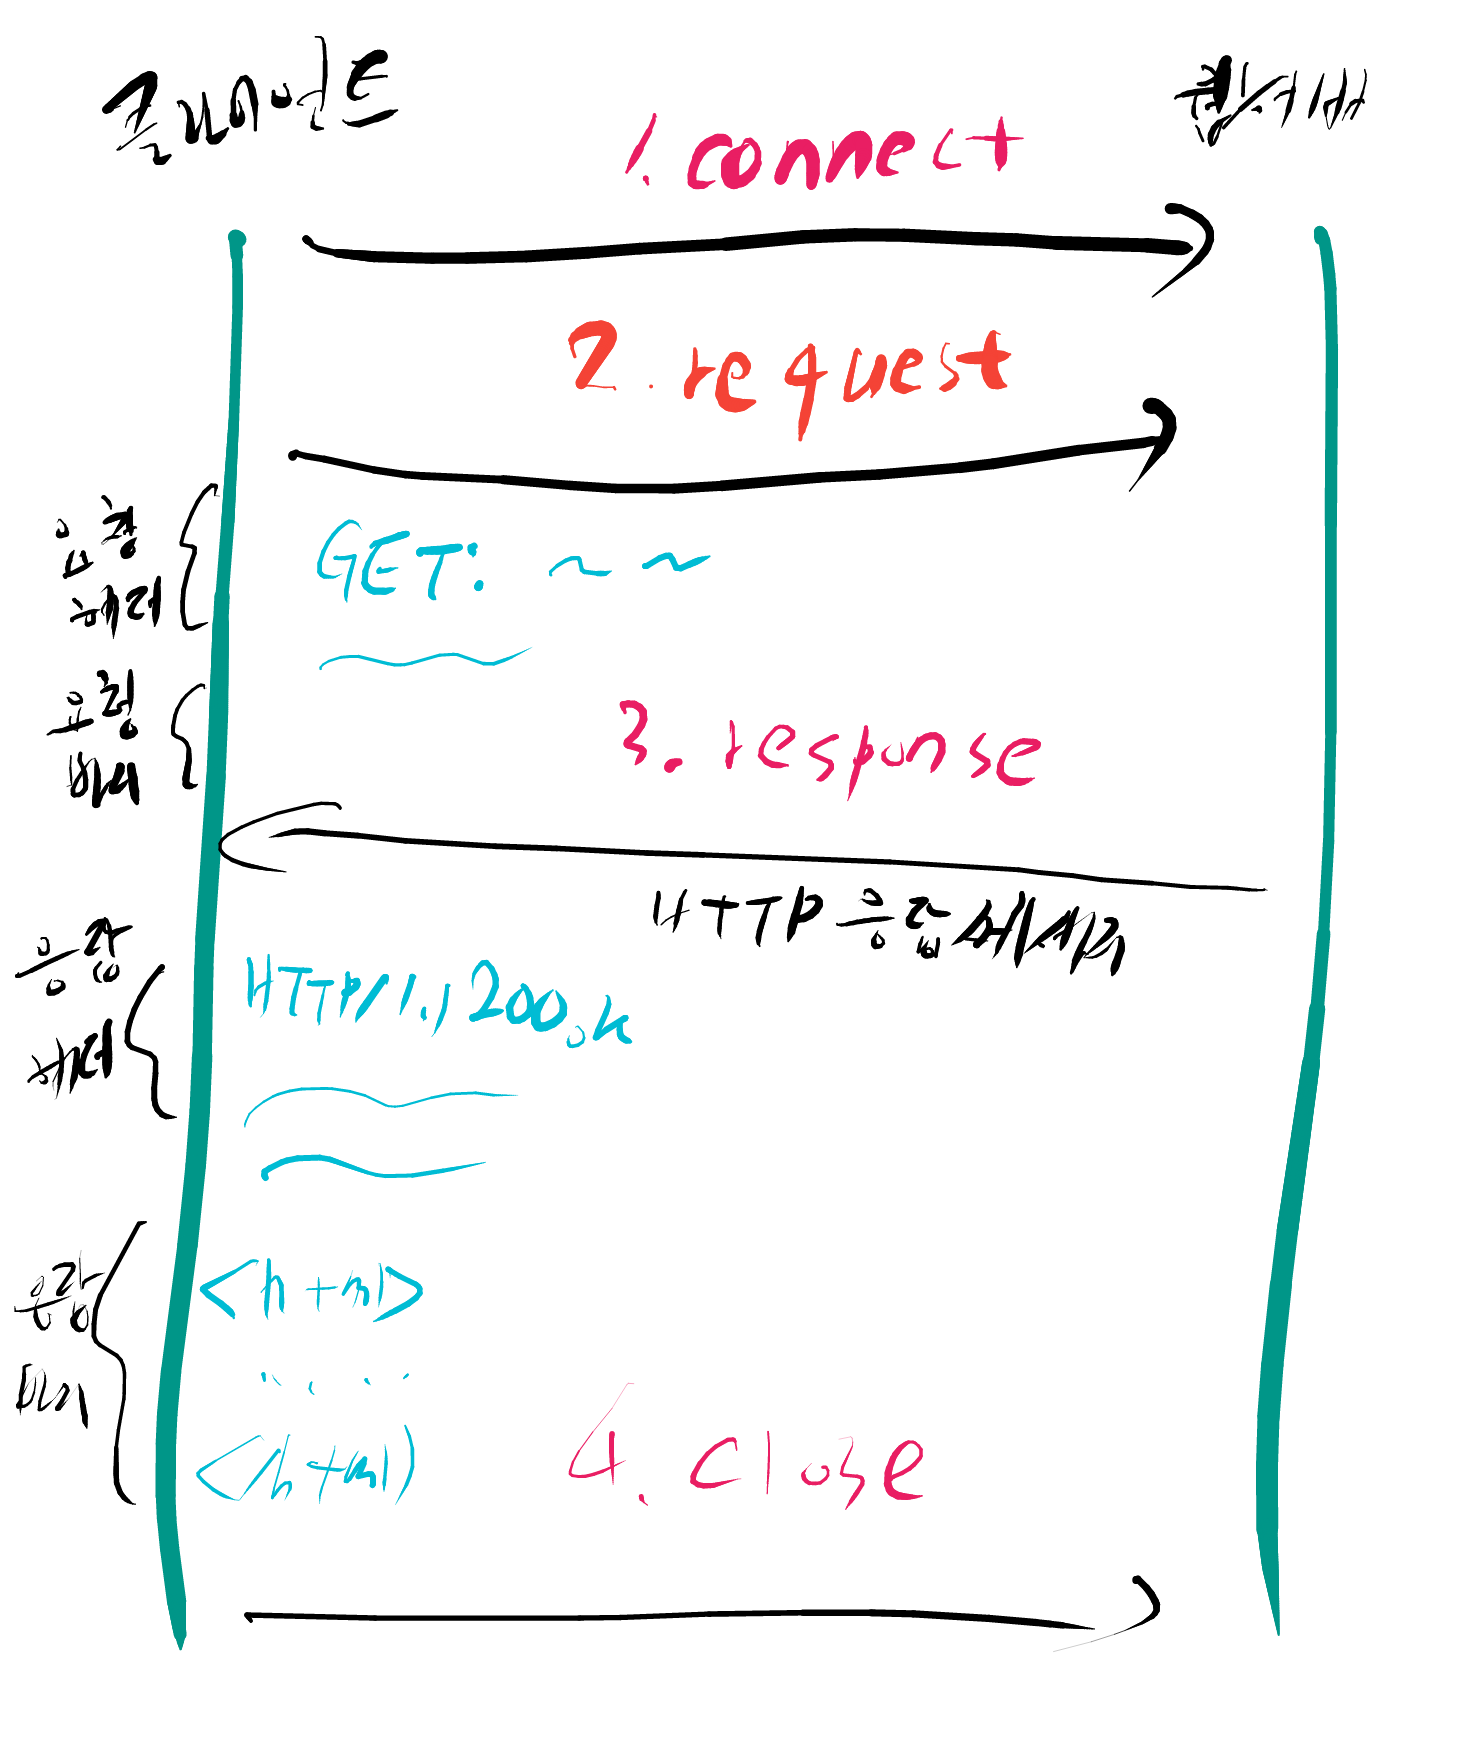 클라이언트
웹서버
1. connect
2. request
요청
헤더
GET: ~ ~
요청
바디
3. response
HTTP 응답 메세지
응답
헤더
HTTP/1.1 200 ok
응답
바디
<html>
.....
</html>
4. close